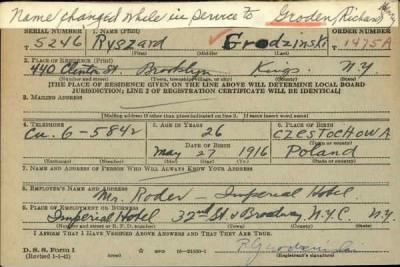 Name changed while in service to Groden (Richard)
SERIAL NUMBER 1. NAME (Print) ORDER NUMBER
5246 Ryszard Grodzinski 1475A
2. PLACE OF RESIDENCE (Print)
440 Clinton St. Brooklyn Kings N.Y.
(Number and street) (Town, township, village, or city) (County) (State)
[THE PLACE OF RESIDENCE GIVEN ON THE LINE ABOVE WILL DETERMINE LOCAL BOARD
JURISDICTION; LINE 2 OF REGISTRATION CERTIFICATE WILL BE IDENTICAL]
3. MAILING ADDRESS
[Mailing address if other than place indicated on line 2. If same insert word same]
4. TELEPHONE 5. AGE IN YEARS 6. PLACE OF BIRTH
Cu. 6-5842 26 CZESTOCHOWA
DATE OF BIRTH (Town or county)
May 27 1916 Poland
(Exchange) (Number) (Mo.) (Day) (Yr.) (State or country)
7. NAME AND ADDRESS OF PERSON WHO WILL ALWAYS KNOW YOUR ADDRESS
8. EMPLOYER'S NAME AND ADDRESS
Mr. Roder - Imperial Hotel
9. PLACE OF EMPLOYMENT OR BUSINESS
Imperial Hotel 32nd St. & Broadway, N.Y.C. N.Y.
(Number and street or R. F. D. number) (Town) (County) (State)
I AFFIRM THAT I HAVE VERIFIED ABOVE ANSWERS AND THAT THEY ARE TRUE.
D. S. S. Form 1
(Revised 1-1-42) (over) (Registrant's signature)